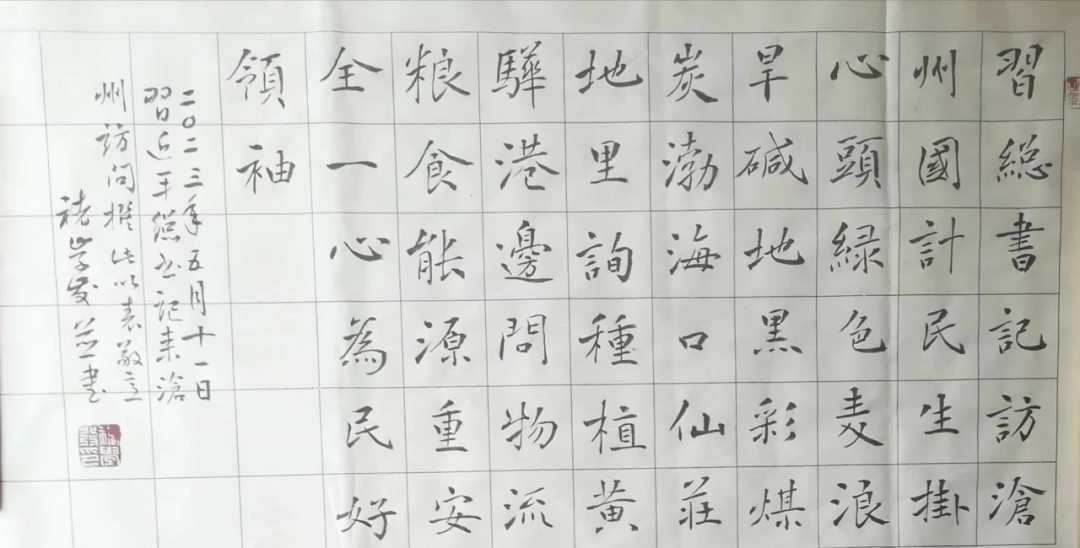 習總書記訪滄
州國計民生掛
心頭綠色麦浪
旱碱地黑彩煤
炭渤海口仙莊
地里詢種植黄
驊港邊問物流
粮食能源重安
全一心為民好
領袖
二〇二三年五月十一日
習近平總书記来滄
州訪問撰此以表敬意
褚学发並書